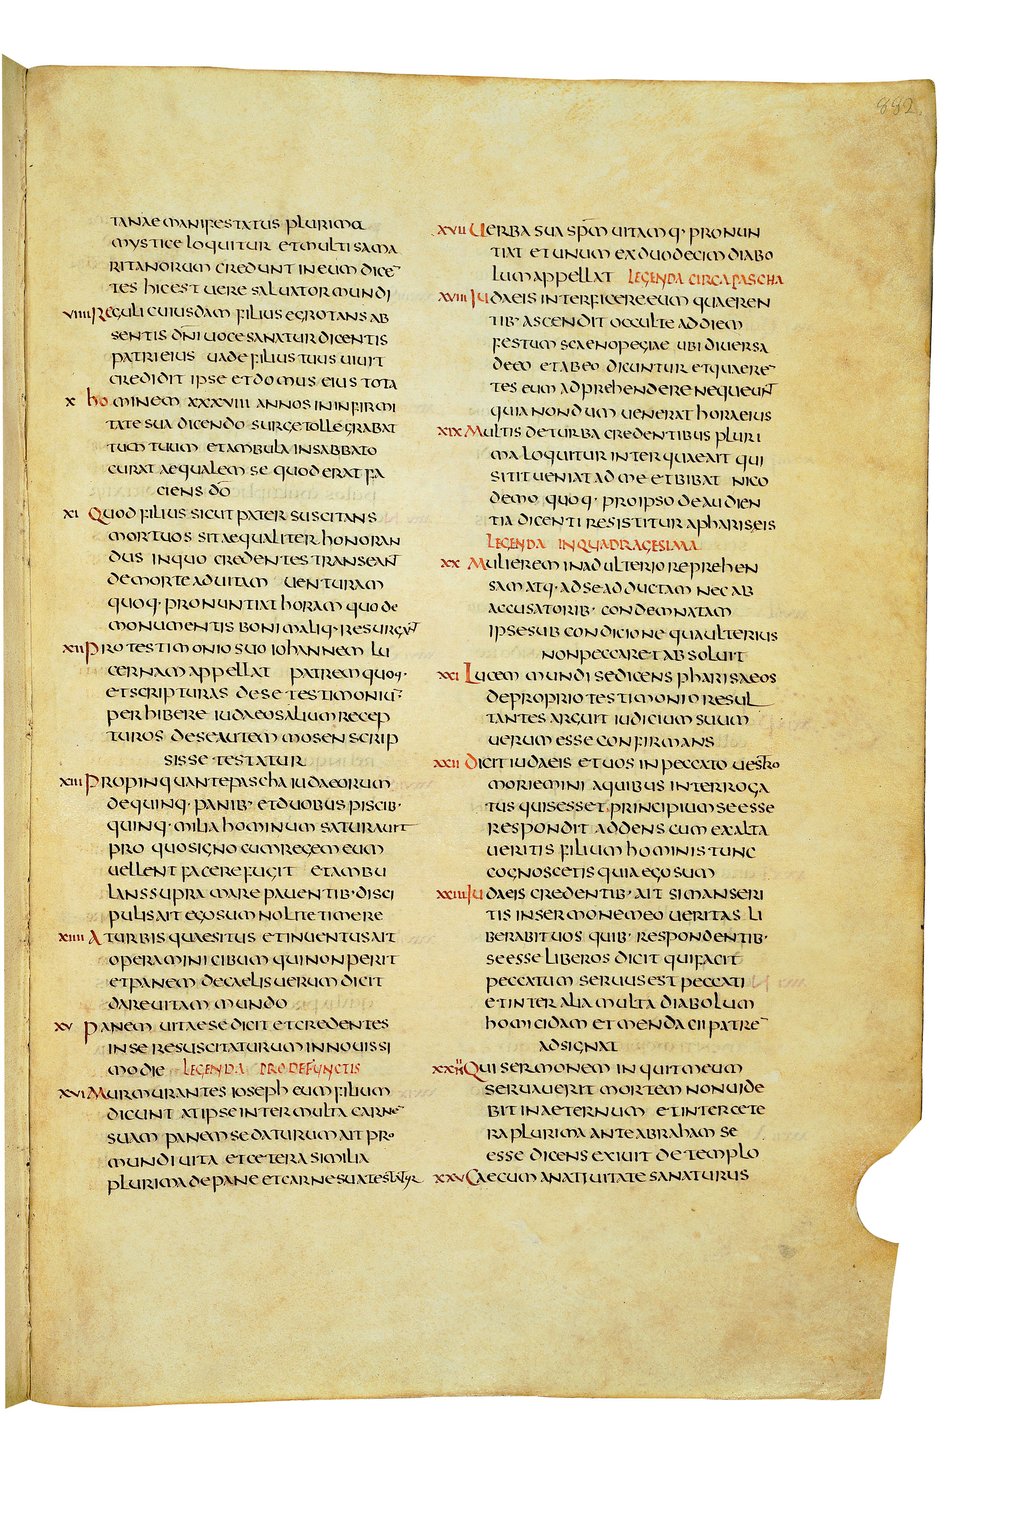 882
TANAE MANIFESTATUS PLURIMA
MYSTICE LOQUITUR ET MULTI SAMA
RITANORUM CREDUNT IN EUM DICE̅
TES HIC EST UERE SALUATOR MUNDI
VIIII REGULI CUIUSDAM FILIUS EGROTANS AB
SENTIS DN̅I UOCE SANATUR DICENTIS
PATRI EIUS UADE FILIUS TUUS UIUIT
CREDIDIT IPSE ET DOMUS EIUS TOTA
X HOMINEM XXXVIII ANNOS IN INFIRMI
TATE SUA DICENDO SURGE TOLLE GRABAT
TUM TUUM ET AMBULA IN SABBATO
CURAT AEQUALEM SE QUOD ERAT FA
CIENS DO̅
XI QUOD FILIUS SICUT PATER SUSCITANS
MORTUOS SIT AEQUALITER HONORAN
DUS IN QUO CREDENTES TRANSEANT
DE MORTE AD UITAM UENTURAM
QUOQ· PRONUNTIAT HORAM QUO DE
MONUMENTIS BONI MALIQ· RESURGANT
XII PRO TESTIMONIO SUO IOHANNEM LU
CERNAM APPELLAT PATREM QUOQ·
ET SCRIPTURAS DE SE TESTIMONIU̅
PERHIBERE IUDAEOS ALIUM RECEP
TUROS DE SE AUTEM MOSEN SCRIP
SISSE TESTATUR
XIII PROPINQUANTE PASCHA IUDAEORUM
DE QUINQ· PANIB· ET DUOBUS PISCIB·
QUINQ· MILIA HOMINUM SATURAUIT
PRO QUO SIGNO CUM REGEM EUM
UELLENT FACERE FUGIT ET AMBU
LANS SUPRA MARE PAUENTIB· DISCI
PULIS AIT EGO SUM NOLITE TIMERE
XIIII A TURBIS QUAESITUS ET INUENTUS AIT
OPERAMINI CIBUM QUI NON PERIT
ET PANEM DE CAELIS UERUM DICIT
DARE UITAM MUNDO
XV PANEM UITAE SE DICIT ET CREDENTES
IN SE RESUSCITATURUM IN NOUISSI
MO DIE LEGENDA PRO DEFUNCTIS
XVI MURMURANTES IOSEPH EUM FILIUM
DICUNT AT IPSE INTER MULTA CARNE̅
SUAM PANEM SE DATURUM AIT PRO
MUNDI UITA ET CETERA SIMILIA
PLURIMA DE PANE ET CARNE SUA TESTATUR
XVII UERBA SUA SPM̅ UITAMQ· PRONUN
TIAT ET UNUM EX DUODECIM DIABO
LUM APPELLAT LEGENDA CIRCA PASCHA
XVIII IUDAEIS INTERFICERE EUM QUAEREN
TIB· ASCENDIT OCCULTE AD DIEM
FESTUM SCAENOPEGIAE UBI DIUERSA
DE EO ET AB EO DICUNTUR ET QUAERE̅
TES EUM ADPREHENDERE NEQUEUNT
QUIA NONDUM UENERAT HORA EIUS
XIX MULTIS DE TURBA CREDENTIBUS PLURI
MA LOQUITUR INTER QUAE AIT QUI
SITIT UENIAT AD ME ET BIBAT NICO
DEMO QUOQ· PRO IPSO DE AUDIEN
TIA DICENTI RESISTITUR A PHARISEIS
LEGENDA IN QUADRAGESIMA
XX MULIEREM IN ADULTERIO REPREHEN
SAM ATQ· AD SE ADDUCTAM NEC AB
ACCUSATORIB· CONDEMNATAM
IPSE SUB CONDICIONE QUA ULTERIUS
NON PECCARET ABSOLUIT
XXI LUCEM MUNDI SE DICENS PHARISAEOS
DE PROPRIO TESTIMONIO RESUL
TANTES ARGUIT IUDICIUM SUUM
UERUM ESSE CONFIRMANS
XXII DICIT IUDAEIS ET UOS IN PECCATO UESTRO
MORIEMINI A QUIBUS INTERROGA
TUS QUIS ESSET PRINCIPIUM SE ESSE
RESPONDIT ADDENS CUM EXALTA
UERITIS FILIUM HOMINIS TUNC
COGNOSCETIS QUIA EGO SUM
XXIII IUDAEIS CREDENTIB· AIT SI MANSERI
TIS IN SERMONE MEO UERITAS LI
BERABIT UOS QUIB· RESPONDENTIB·
SE ESSE LIBEROS DICIT QUI FACIT
PECCATUM SERUUS EST PECCATI
ET INTER ALIA MULTA DIABOLUM
HOMICIDAM ET MENDACII PATRE̅
ADSIGNAT
XXIIII QUI SERMONEM INQUIT MEUM
SERUAUERIT MORTEM NON UIDE
BIT IN AETERNUM ET INTER CETE
RA PLURIMA ANTE ABRAHAM SE
ESSE DICENS EXIUIT DE TEMPLO
XXV CAECUM A NATIUITATE SANATURUS